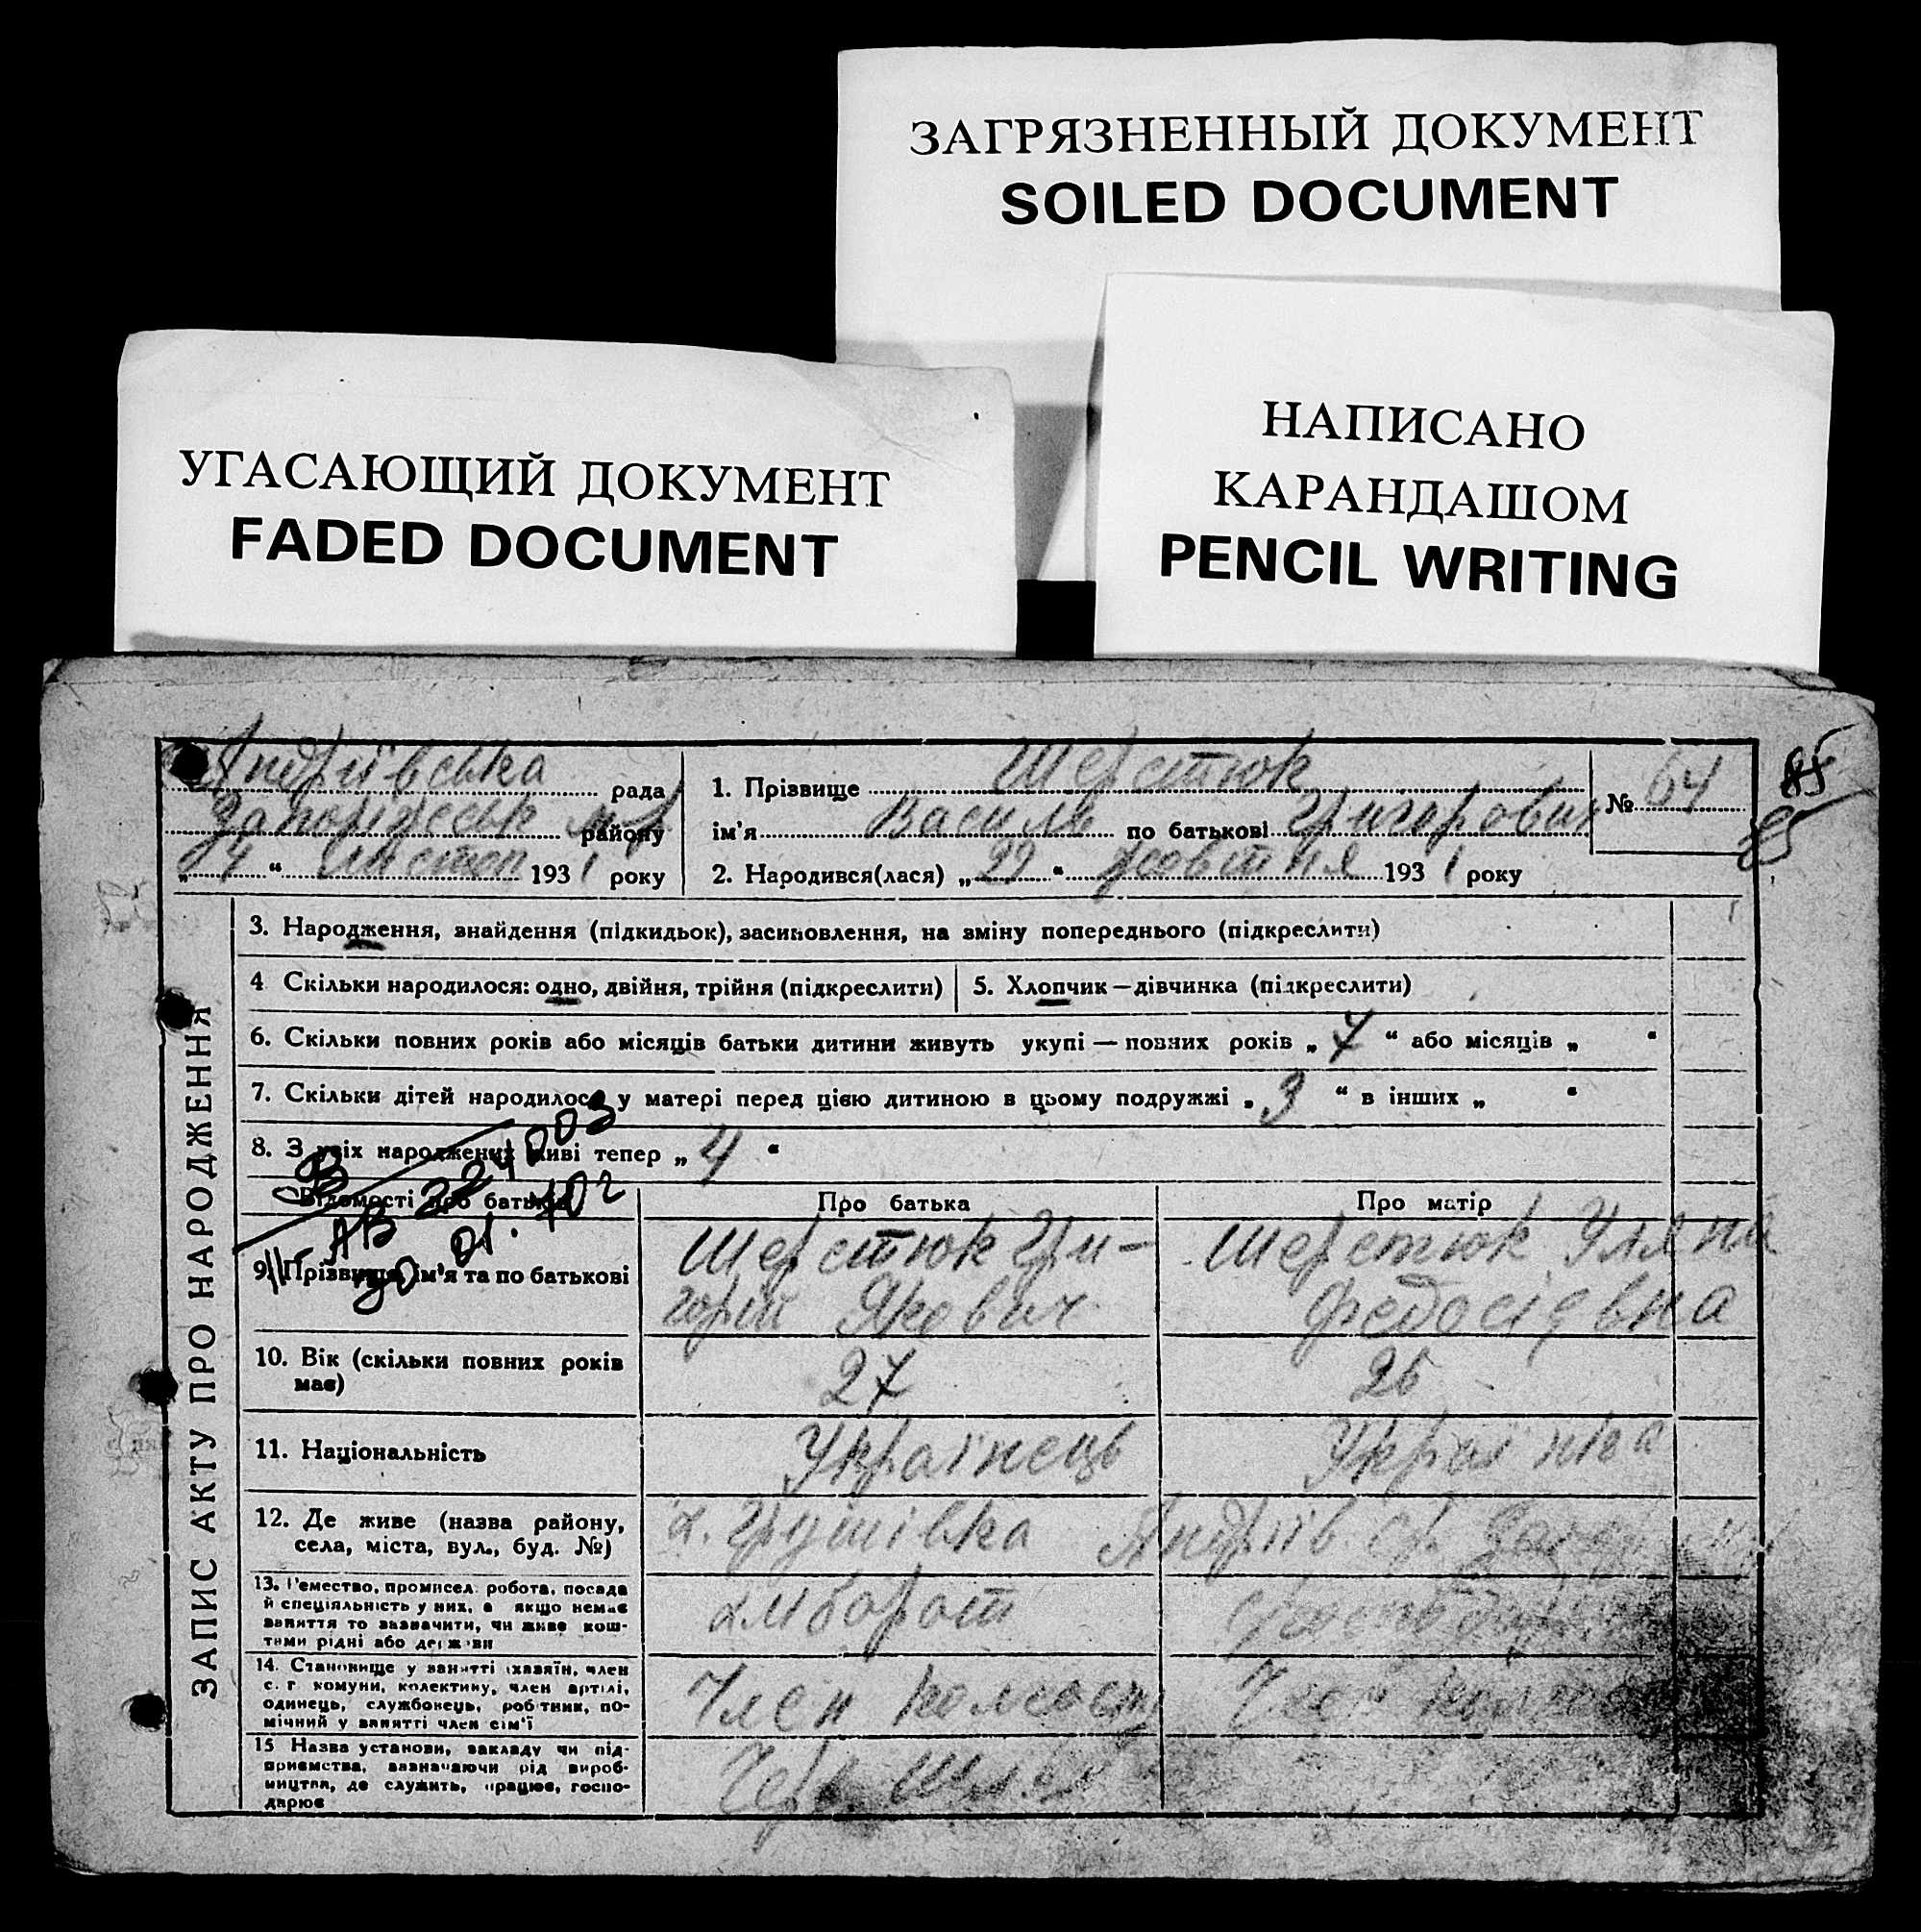 ЗАГРЯЗНЕННЫЙ ДОКУМЕНТ
SOILED DOCUMENT
НАПИСАНО
КАРАНДАШОМ
PENCIL WRITING
УГАСАЮЩИЙ ДОКУМЕНТ
FADED DOCUMENT
Андріївська рада
району
„4“ листоп 1931 року
1. Прізвище Шерстюк
ім'я Василь по батькові Григорович
2. Народився(лася) „29“ жовтня 1931 року
№ 64
85
85
ЗАПИС АКТУ ПРО НАРОДЖЕННЯ
3. Народження, знайдення (підкидьок), засиновлення, на зміну попереднього (підкреслити)
4 Скільки народилося: одно, двійня, трійня (підкреслити)
5. Хлопчик—дівчинка (підкреслити)
6. Скільки повних років або місяців батьки дитини живуть укупі — повних років „7“ або місяців „ “
7. Скільки дітей народилося у матері перед цією дитиною в цьому подружжі „3“ в інших „ “
8. З усіх народжених живі тепер „4“
Відомості про батьків
Про батька
Про матір
9. Прізвище, ім'я та по батькові
Шерстюк Гри-
горій Якович
Шерстюк Уляна
Федосіївна
10. Вік (скільки повних років
має)
27
26
11. Національність
Українець
Українка
12. Де живе (назва району,
села, міста, вул., буд. №)
х. Грушівка Андріїв. ср.
13. Ремество, промисел робота, посада
й спеціяльність у них, а якщо немає
заняття то зазначити, чи живе кош-
тами рідні або держави
хлібороб
14. Становище у занятті (хазяїн, член
с. г комуни, колективу, член артілі,
одинець, службовець, робітник, по-
мічний у занятті член сім'ї
Член колгосп
Член колгосп
15 Назва установи, закладу чи під-
приємства, зазначаючи рід вироб-
ництва, де служить, працює, госпо-
дарює